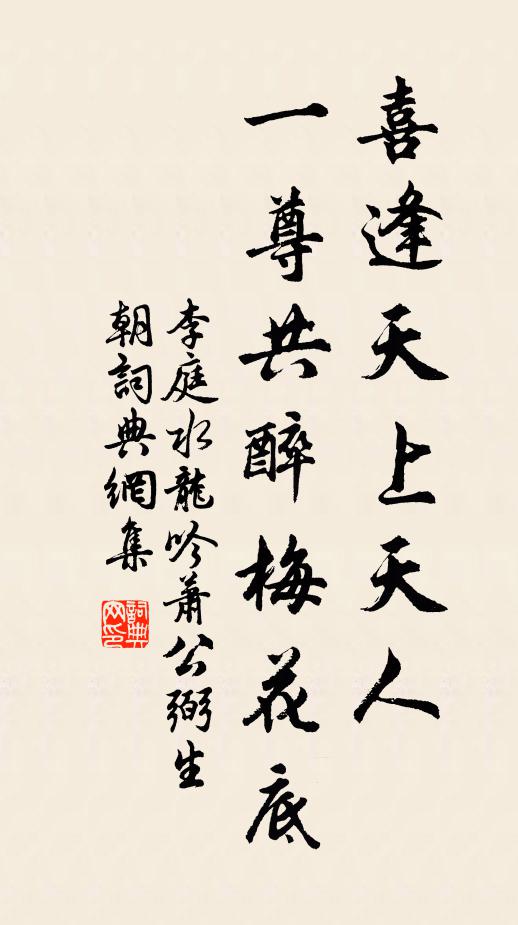 喜逢天上天人
一尊共醉梅花底
李庭水龍吟蕭公弼生
朝詞典網集
詞典
网印